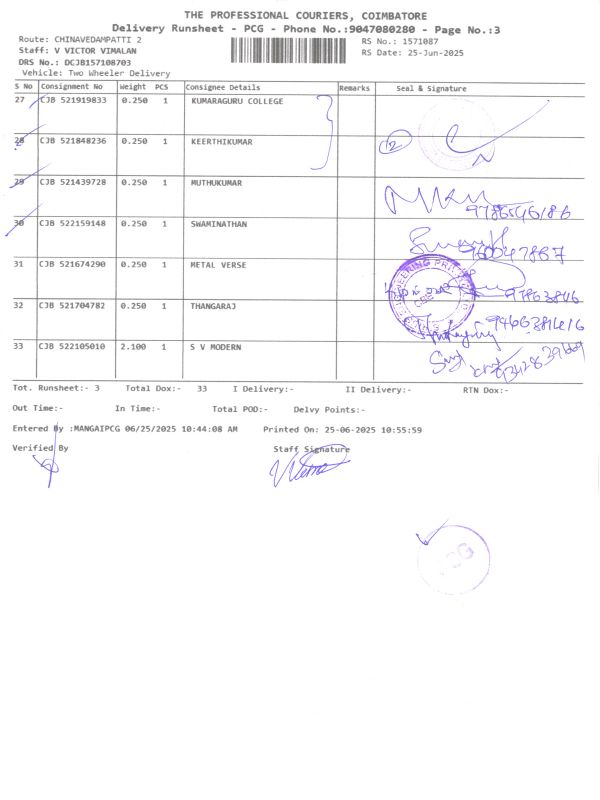 THE PROFESSIONAL COURIERS, COIMBATORE
Delivery Runsheet - PCG - Phone No.:9047080280 - Page No.:3
Route: CHINAVEDAMPATTI 2
RS No.: 1571087
Staff: V VICTOR VIMALAN
RS Date: 25-Jun-2025
DRS No.: DCJB157108703
Vehicle: Two Wheeler Delivery
S No Consignment No Weight PCS Consignee Details Remarks Seal & Signature
27 CJB 521919833 0.250 1 KUMARAGURU COLLEGE
28 CJB 521848236 0.250 1 KEERTHIKUMAR
29 CJB 521439728 0.250 1 MUTHUKUMAR
30 CJB 522159148 0.250 1 SWAMINATHAN
31 CJB 521674290 0.250 1 METAL VERSE
32 CJB 521704782 0.250 1 THANGARAJ
33 CJB 522105010 2.100 1 S V MODERN
Tot. Runsheet:- 3 Total Dox:- 33 I Delivery:- II Delivery:- RTN Dox:-
Out Time:- In Time:- Total POD:- Delvy Points:-
Entered By :MANGAIPCG 06/25/2025 10:44:08 AM Printed On: 25-06-2025 10:55:59
Verified By Staff Signature
PCG